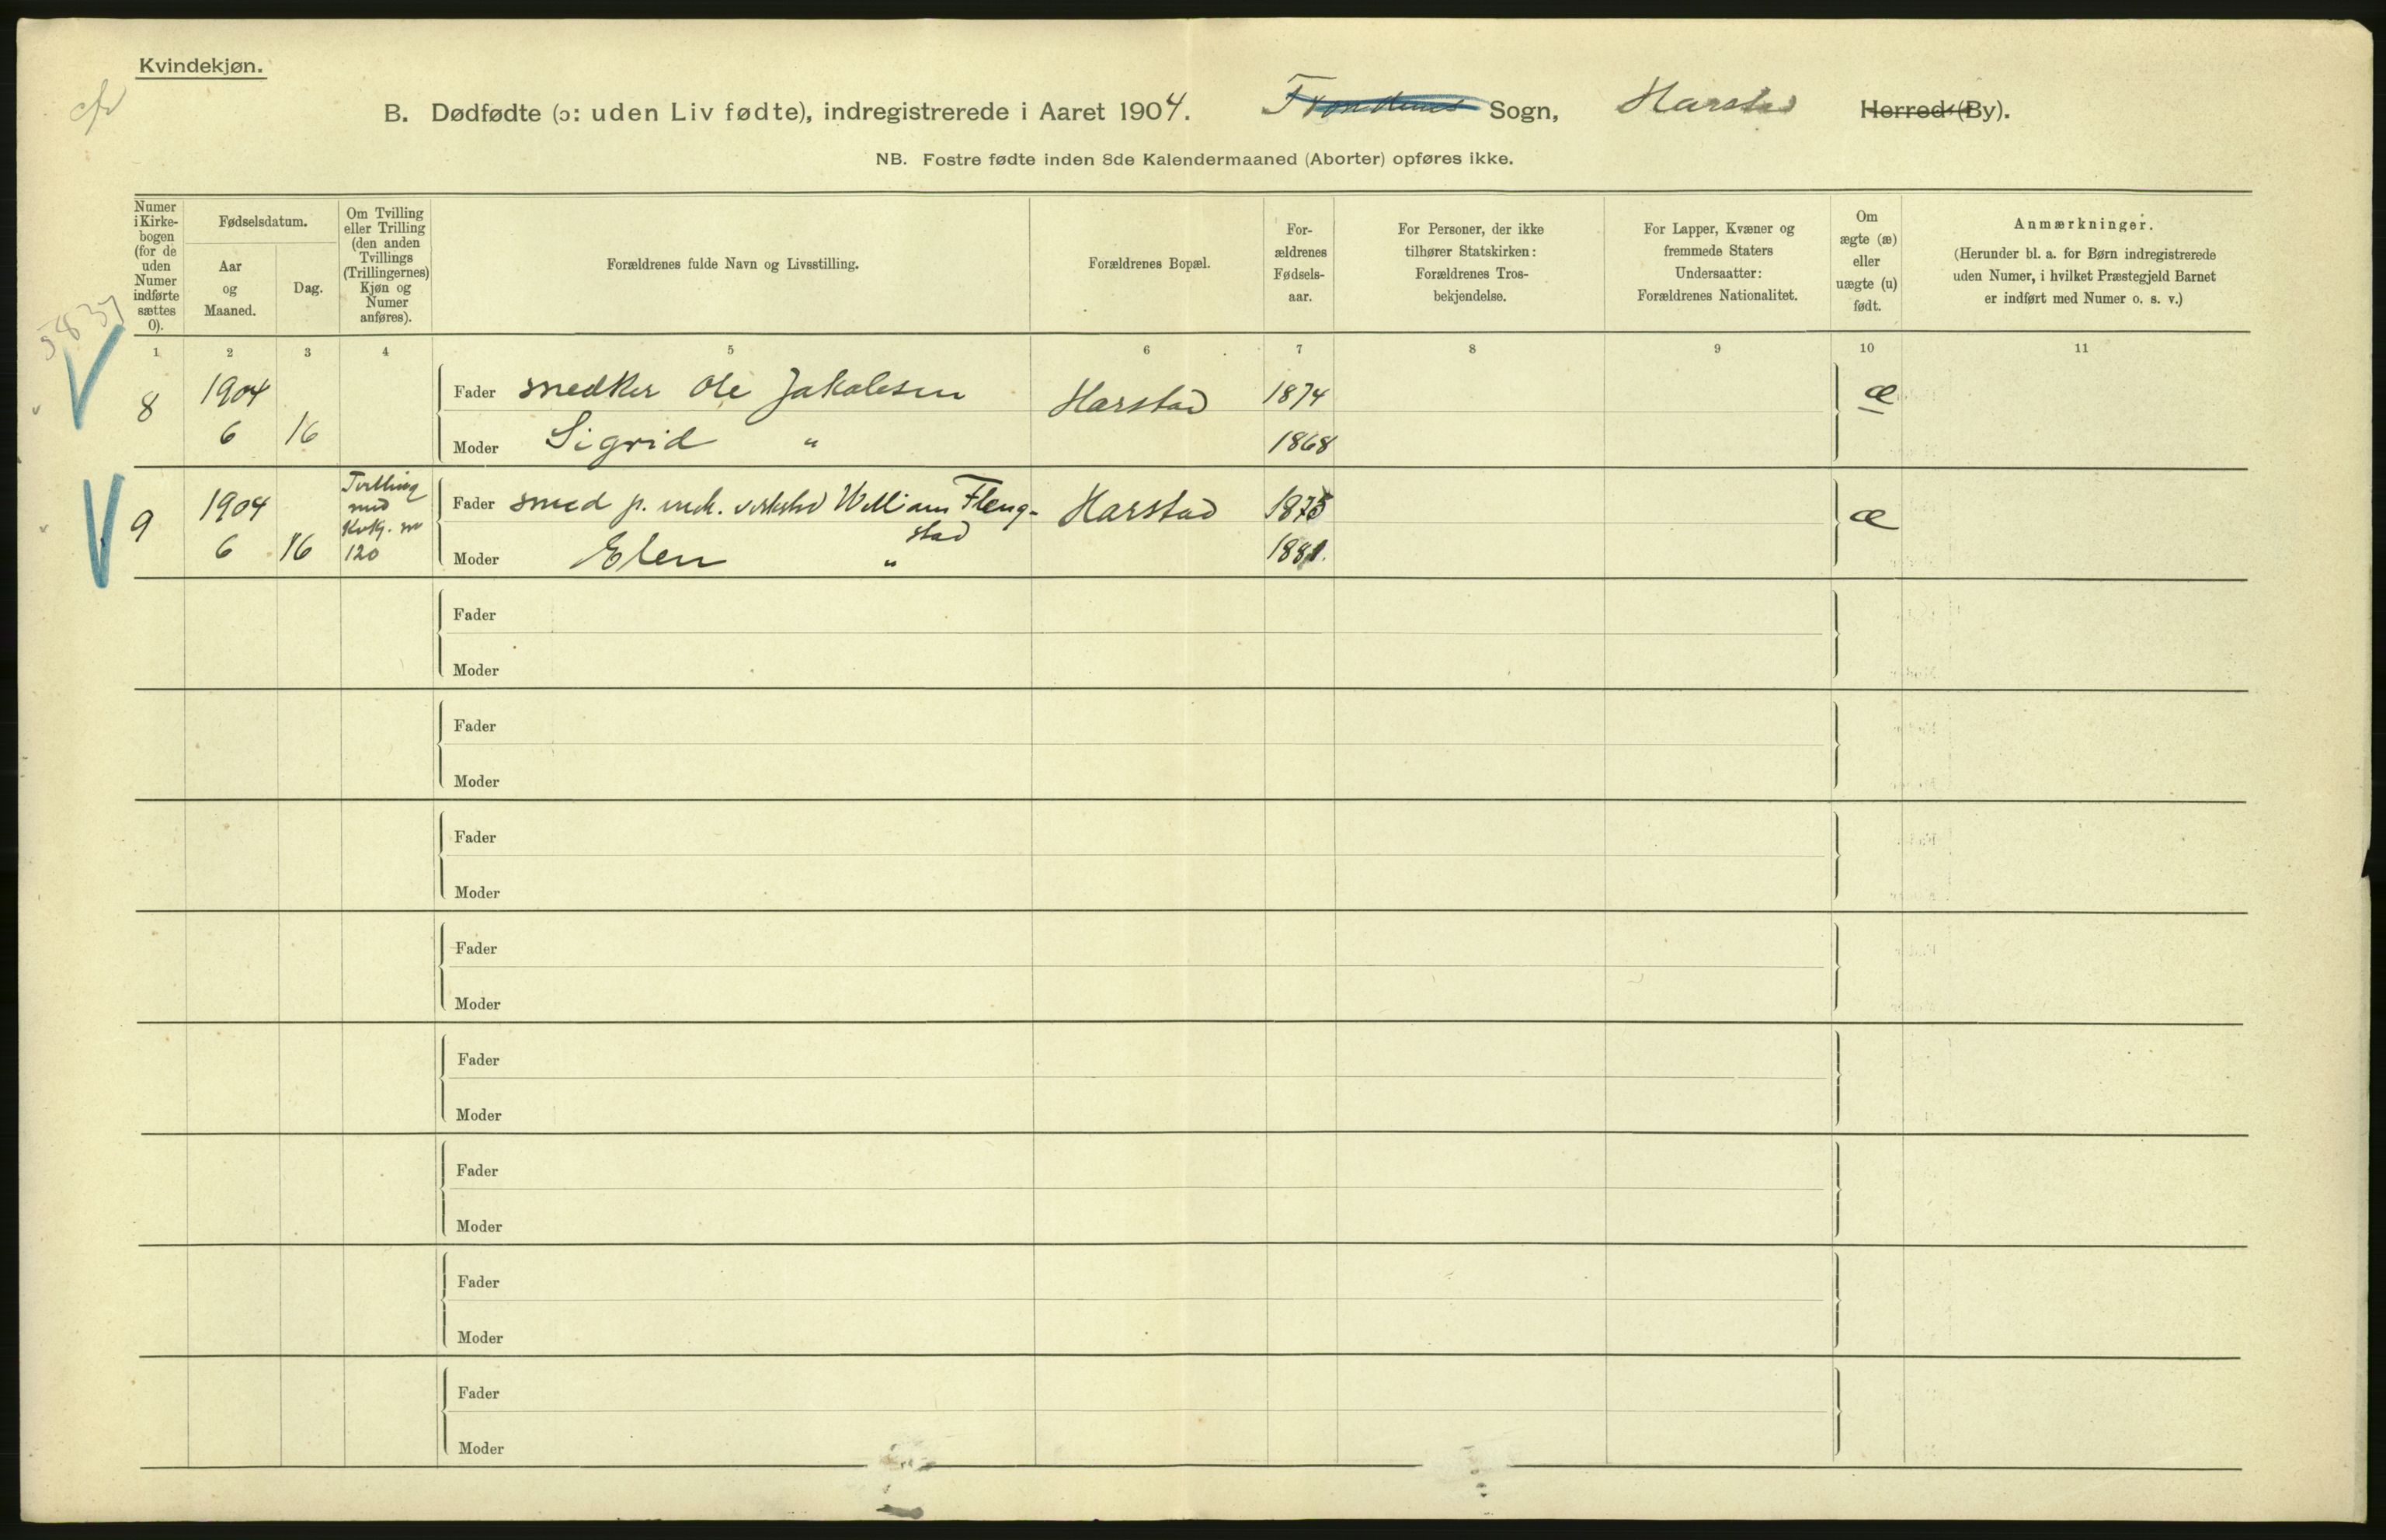 Kvindekjøn.
B. Dødfødte (ɔ: uden Liv fødte), indregistrerede i Aaret 1904. Trondenes Sogn, Harstad Herred (By).
NB. Fostre fødte inden 8de Kalendermaaned (Aborter) opføres ikke.
Numer
i Kirke-
bogen
(for de
uden
Numer
indførte
sættes
0).
Fødselsdatum.
Aar
og
Maaned.
Dag.
Om Tvilling
eller Trilling
(den anden
Tvillings
(Trillingernes)
Kjøn og
Numer
anføres).
Forældrenes fulde Navn og Livsstilling.
Forældrenes Bopæl.
For-
ældrenes
Fødsels-
aar.
For Personer, der ikke
tilhører Statskirken:
Forældrenes Tros-
bekjendelse.
For Lapper, Kvæner og
fremmede Staters
Undersaatter:
Forældrenes Nationalitet.
Om
ægte (æ)
eller
uægte (u)
født.
Anmærkninger.
(Herunder bl. a. for Børn indregistrerede
uden Numer, i hvilket Præstegjeld Barnet
er indført med Numer o. s. v.)
1 2 3 4 5 6 7 8 9 10 11
8 1904 Fader snedker Ole Jakobsen Harstad 1874 æ
6 16 Moder Sigrid " 1868
9 1904 Tvilling
med
120
Fader smed p. mek. verksted William Fleng-
stad Harstad 1875 æ
6 16 Moder Elen " 1881.
Fader
Moder
Fader
Moder
Fader
Moder
Fader
Moder
Fader
Moder
Fader
Moder
Fader
Moder
Fader
Moder